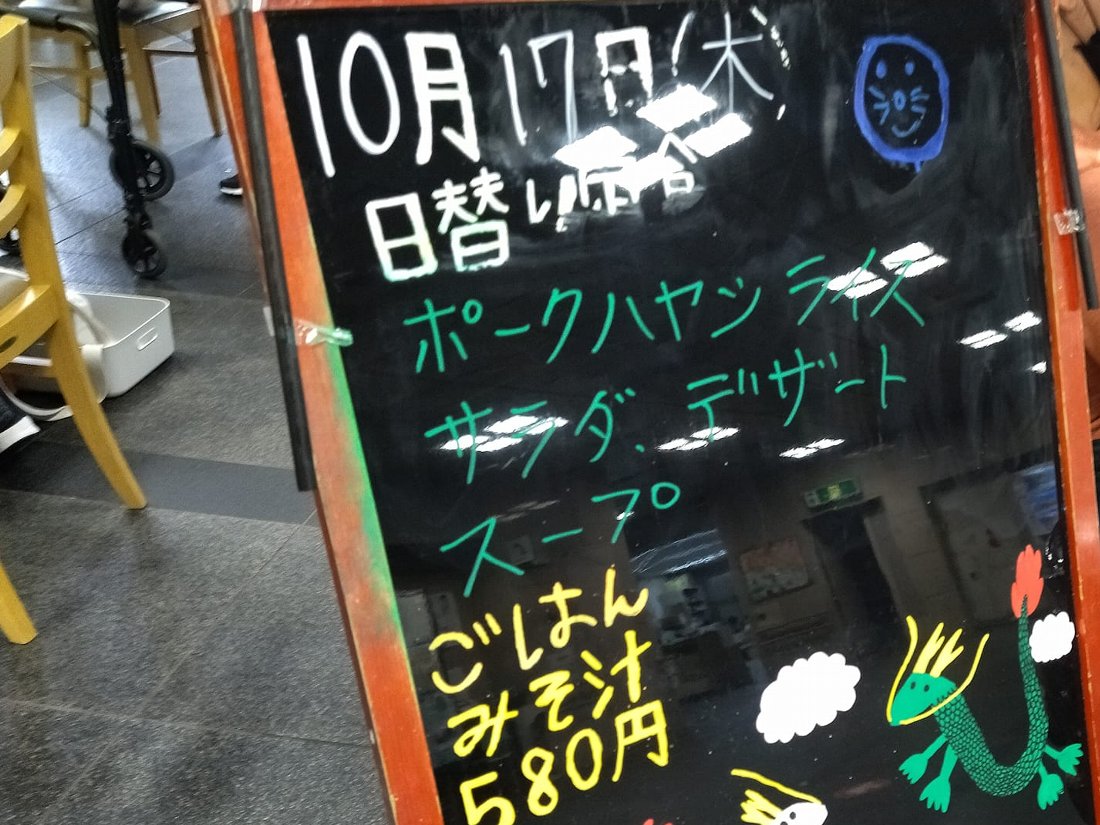 10月17日(木)
日替り定食
ポークハヤシライス
サラダ、デザート
スープ
ごはん
みそ汁
580円